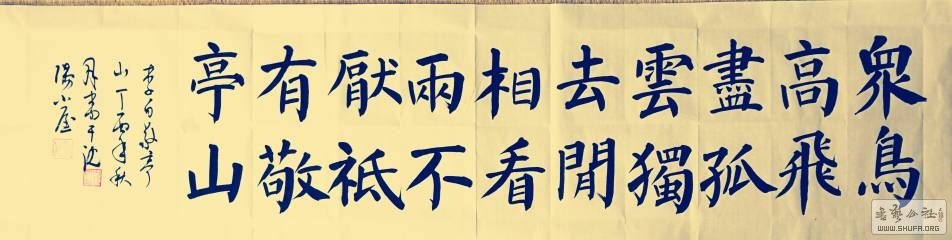 眾鳥
高飛
盡孤
雲獨
去閒
相看
兩不
厭祗
有敬
亭山
李白敬亭
山丁酉年秋
月書于沈
陽小
書藝公社
WWW.SHUFA.ORG